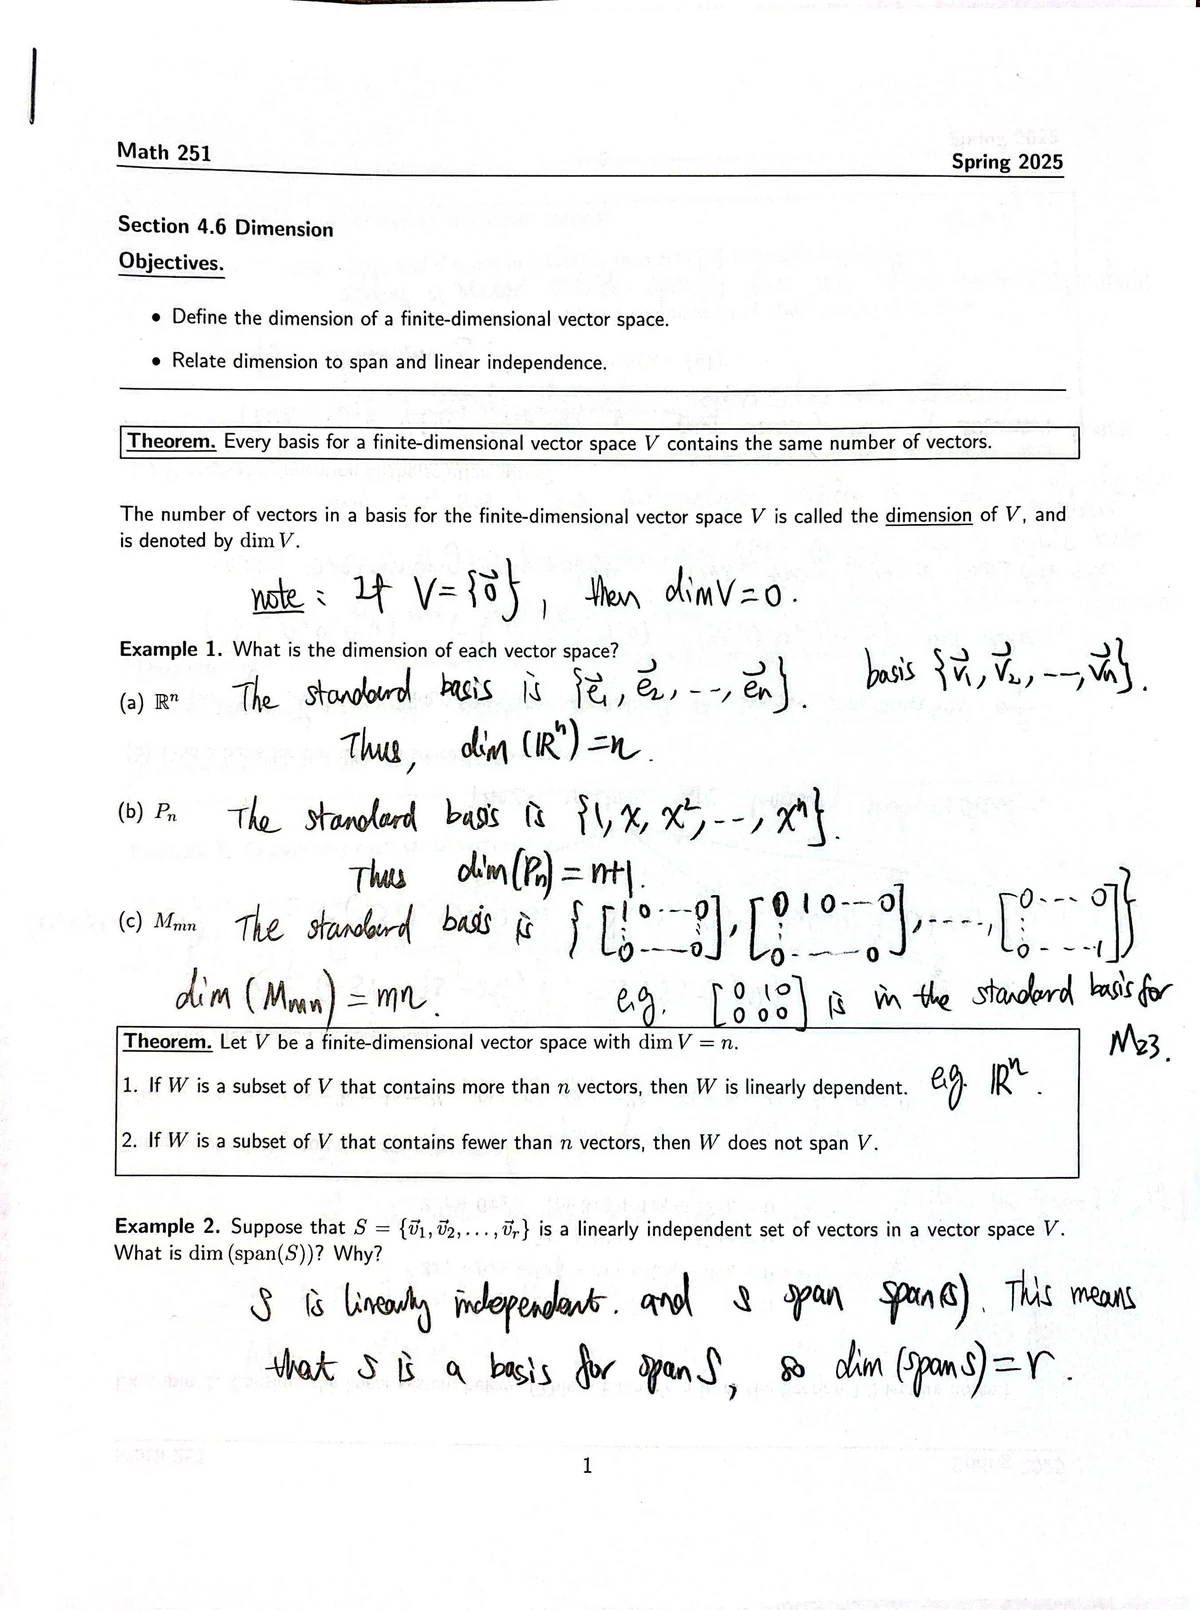 Math 251
Spring 2025
Section 4.6 Dimension
Objectives.
• Define the dimension of a finite-dimensional vector space.
• Relate dimension to span and linear independence.
Theorem. Every basis for a finite-dimensional vector space V contains the same number of vectors.
The number of vectors in a basis for the finite-dimensional vector space V is called the dimension of V, and
is denoted by dim V.
note : If V = {0⃗}, then dim V = 0.
Example 1. What is the dimension of each vector space?
basis {v⃗₁, v⃗₂, --, v⃗ₙ}.
(a) ℝⁿ The standard basis is {e⃗₁, e⃗₂, --, e⃗ₙ}.
Thus, dim (ℝⁿ) = n.
(b) Pₙ The standard basis is {1, x, x², --, xⁿ}.
Thus dim(Pₙ) = n+1.
(c) Mₘₙ The standard basis is { [1 0 --- 0 ⋮ ⋮ 0 --- 0], [0 1 0 --- 0 ⋮ 0 --- 0], ----, [0 --- 0 ⋮ 0 --- 1] }
dim (Mₘₙ) = mn. e.g. [0 1 0 0 0 0] is in the standard basis for
M₂₃.
Theorem. Let V be a finite-dimensional vector space with dim V = n.
1. If W is a subset of V that contains more than n vectors, then W is linearly dependent. e.g. ℝⁿ.
2. If W is a subset of V that contains fewer than n vectors, then W does not span V.
Example 2. Suppose that S = {v⃗₁, v⃗₂, . . . , v⃗ᵣ} is a linearly independent set of vectors in a vector space V.
What is dim (span(S))? Why?
S is linearly independent. and S span span(S). This means
that S is a basis for span S, so dim (span S) = r.
1